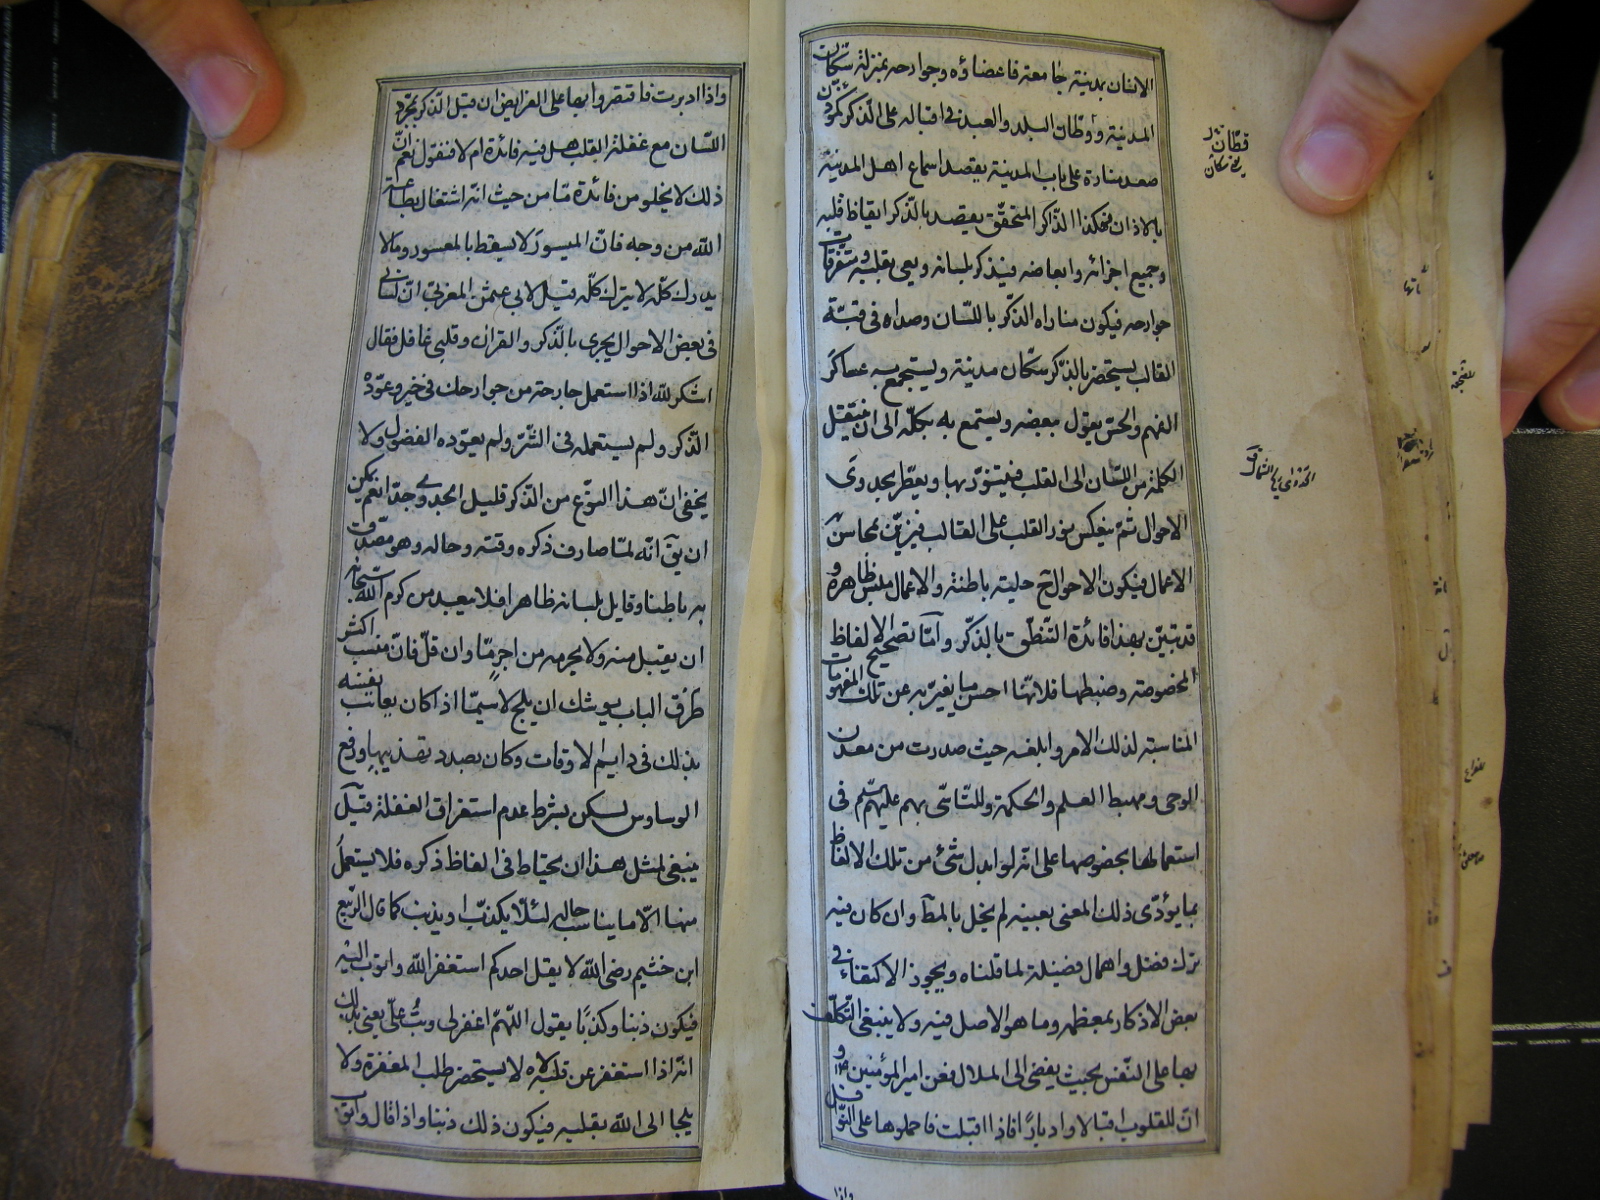 الانسان بمدينة جامعة فاعضاؤه وجوارحه بمنزلة سكّان
المدينة وقطّان البلد والعبد في اقباله على الذّكر كمؤذّن
صعد منارة على باب المدينة يقصد اسماع اهل المدينة
بالاذان فهكذا الذّاكر المتحقّق يقصد بالذّكر ايقاظ قلبه
وجميع اجزائه وابعاضه فيذكر بلسانه ويعي بقلبه ومتفرّقات
جوارحه فيكون مناراه الذّكر باللّسان وصداه في قبّة
القالب يستحضر بالذّكر سكّان مدينته ويستجمع به عساكر
الفهم والحسّ يقول ببعضه ويستمع به بكلّه الى ان ينتقل
الكلمة من اللّسان الى القلب فيتنوّر بها ويظفر بجدوى
الاحوال ثمّ ينعكس نور القلب على القالب فيزيّن بمحاسن
الاعمال فيكون الاحوال ح حلية باطنة والاعمال ملبس ظاهره و
قد تبيّن بهذا فائدة التنطّق بالذّكر وامّا تصحيح الالفاظ
المخصوصة وضبطها فلانّها احسن ما يعبّر به عن تلك المفهومات
المناسبة لذلك الامر وابلغه حيث صدرت من معدن
الوحى ومهبط العلم والحكمة وللتّاسّى بهم عليهم السّلم فى
استعمالها بخصوصها على انّه لو ابدل شئ من تلك الالفاظ
بما يؤدّى ذلك المعنى بعينه لم يخل بالمط وان كان فيه
ترك فضل واهمال فضيلة لما قلناه ويجوز الاكتفاء في
بعض الاذكار بمعظمه وما هو الاصل فيه ولا ينبغى التّكلّف
بها على النّفس بحيث يفضى الى الملال فعن امير المؤمنين ع
انّ للقلوب اقبالا وادبارًا فاذا اقبلت فاحملوها على النّوافل
واذا
قطّان
يعنى سكان
واذا ادبرت فاقتصروا بها على الفرايض ان قيل الذّكر بمجرّد
اللّسان مع غفلة القلب هل فيه فائدة ام لا فنقول نعم انّ
ذلك لا يخلو من فائدة مّا من حيث انّه اشتغال بطاعة
الله من وجه فانّ الميسور لا يسقط بالمعسور وما لا
يدرك كلّه لا يترك كلّه قيل لابى عثمن المغربىّ انّ لسانى
فى بعض الاحوال يجرى بالذّكر والقران وقلبى غافل فقال
اشكر لله اذا استعمل جارحة من جوارحك فى خير وعوّده
الذّكر ولم يستعمله فى الشّرّ ولم يعوّده الفضول ولا
يخفى انّ هذا النّوع من الذّكر قليل الجدوى جدّا نعم يمكن
ان يق انّه لمّا صارف ذكره وقته وحاله وهو مصدّق
به باطنا وقايل بلسانه ظاهرا فلا يبعد من كرم الله سبحانه
ان يقبل منه ولا يحرمه من اجر مّا وان قلّ فانّ من اكثر
طرق الباب يوشك ان يلج لا سيّما اذا كان يعاتب نفسه
بذلك فى دايم الاوقات وكان بصدد تهذيبها ودفع
الوساوس لكن بشرط عدم استغراق الغفلة قيل
ينبغى لمثل هذا ان يحتاط فى الفاظ ذكره فلا يستعمل
منها الّا ما يناسب حاله لئلّا يكذب او يذنب كما قال الرّبيع
ابن خثيم رضى الله لا يقل احدكم استغفر الله واتوب اليه
فيكون ذنبا وكذبًا يقول اللّهمّ اغفر لى وتُب علىّ يعنى بذلك
انّه اذا استغفر عن قلب لاه لا يستحضر طلب المغفرة ولا
يلجا الى الله بقلبه فيكون ذلك ذنبا واذا قال واتوب